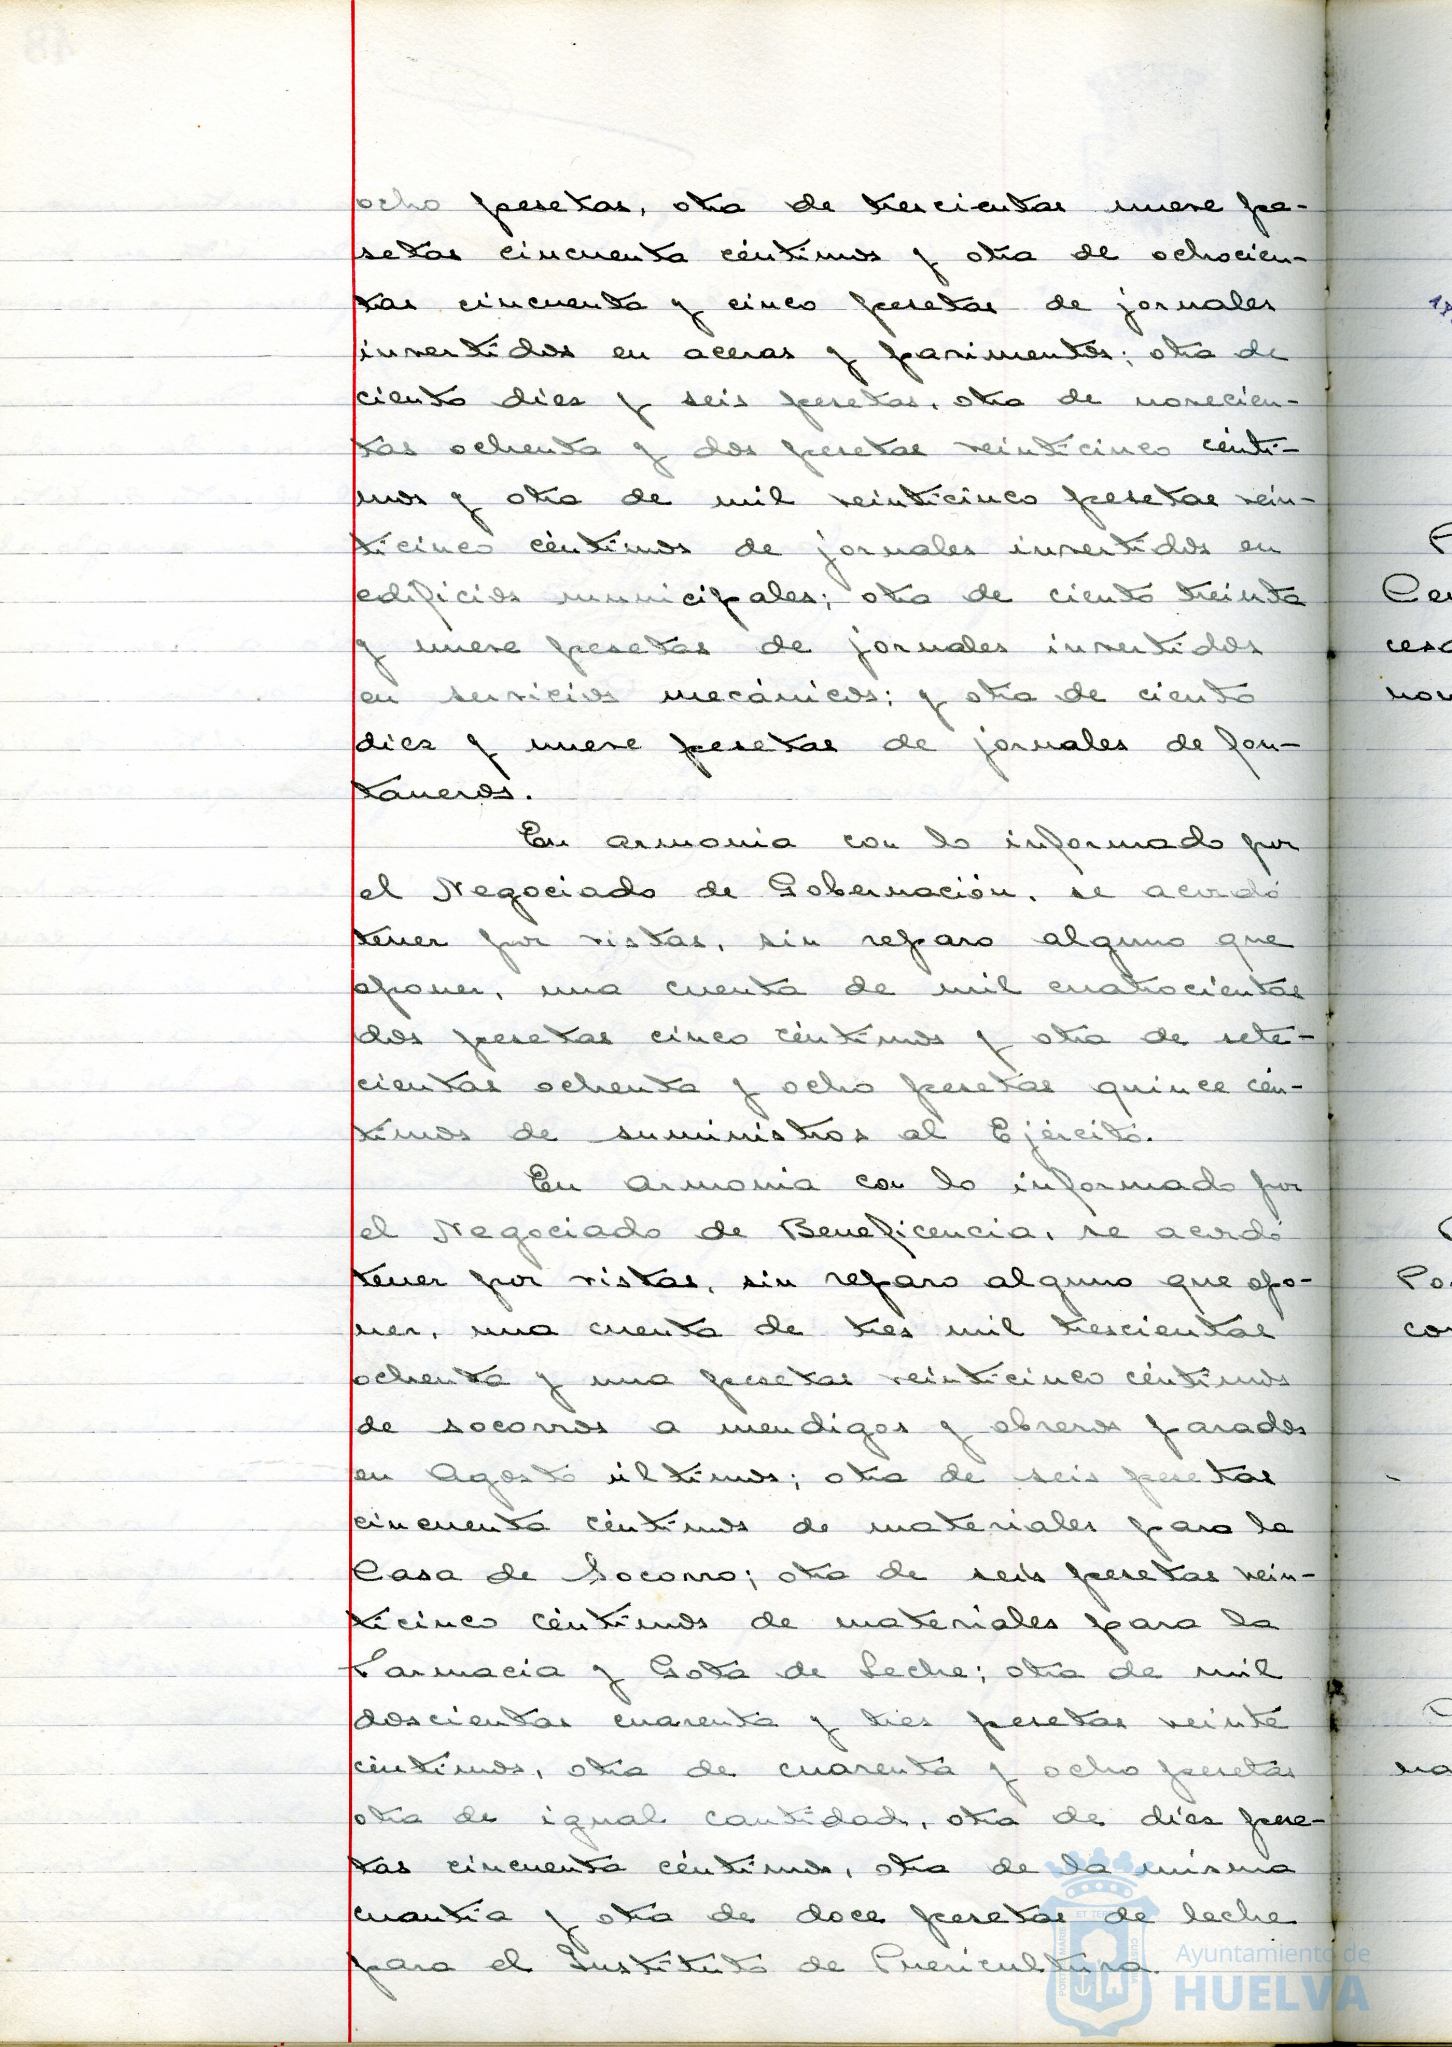 ocho pesetas, otra de trescientas nueve pe-
setas cincuenta céntimos y otra de ochocien-
tas cincuenta y cinco pesetas de jornales
invertidos en aceras y pavimentos; otra de
ciento diez y seis pesetas, otra de novecien-
tas ochenta y dos pesetas veinticinco cénti-
mos y otra de mil veinticinco pesetas vein-
ticinco céntimos de jornales invertidos en
edificios municipales; otra de ciento treinta
y nueve pesetas de jornales invertidos
en servicios mecánicos; y otra de ciento
diez y nueve pesetas de jornales de fon-
taneros.
En armonia con lo informado por
el Negociado de Gobernación, se acordó
tener por vistas, sin reparo alguno que
oponer, una cuenta de mil cuatrocientas
dos pesetas cinco céntimos y otra de sete-
cientas ochenta y ocho pesetas quince cén-
timos de suministros al Ejército.
En armonia con lo informado por
el Negociado de Beneficencia, se acordó
tener por vistas, sin reparo alguno que opo-
ner, una cuenta de tres mil trescientas
ochenta y una pesetas veinticinco céntimos
de socorros a mendigos y obreros parados
en Agosto últimos; otra de seis pesetas
cincuenta céntimos de materiales para la
Casa de Socorro; otra de seis pesetas vein-
ticinco céntimos de materiales para la
Farmacia y Gota de Leche; otra de mil
doscientas cuarenta y tres pesetas veinte
céntimos, otra de cuarenta y ocho pesetas
otra de igual cantidad, otra de diez pese-
tas cincuenta céntimos, otra de la misma
cuantía y otra de doce pesetas de leche
para el Instituto de Puericultura.
Ayuntamiento de
HUELVA